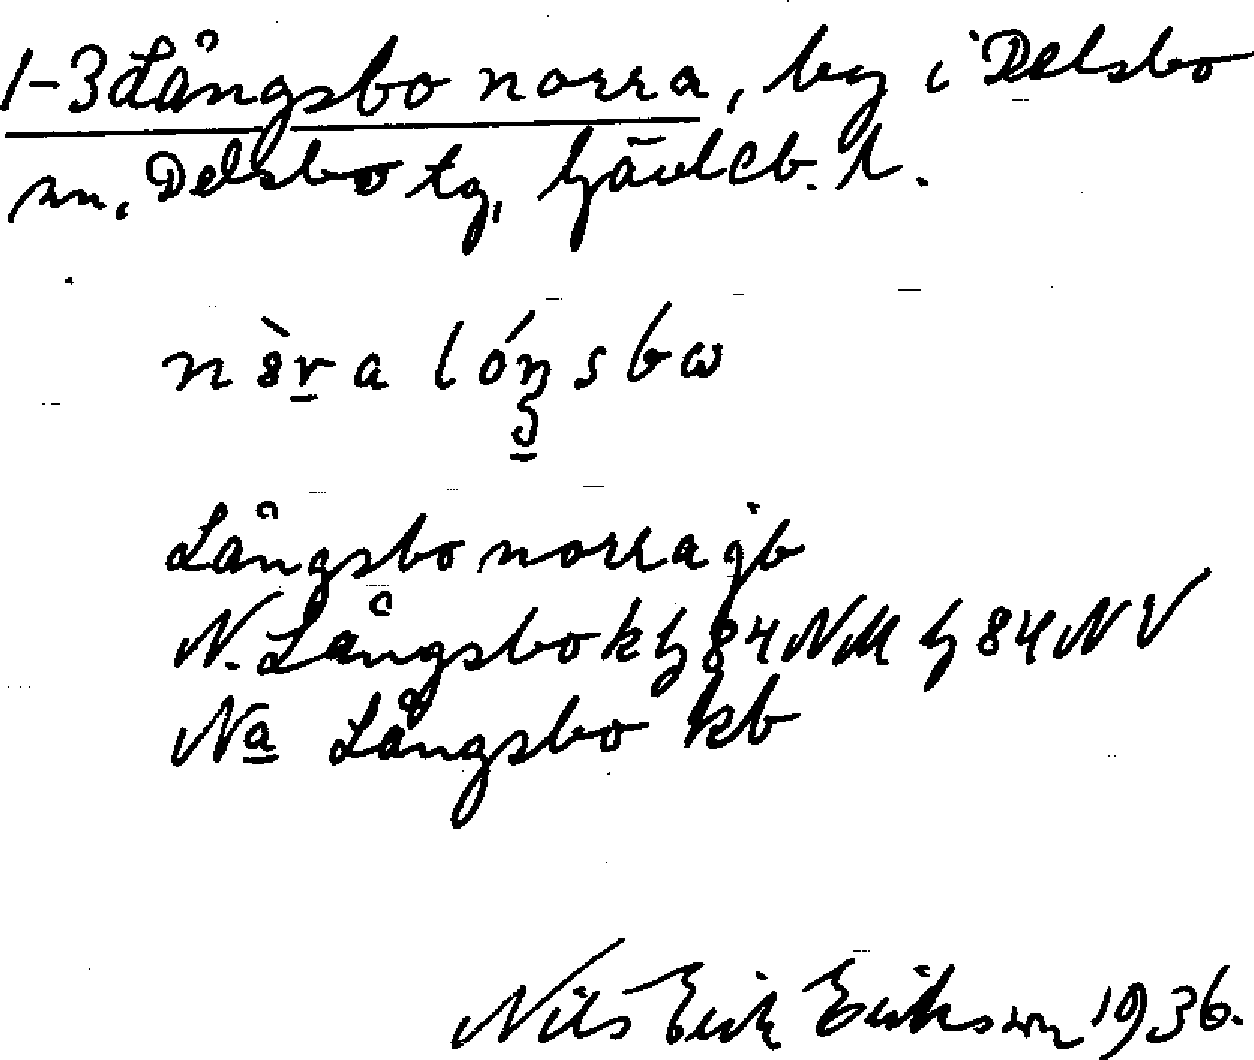 1-3 Långsbo norra, by i Delsbo
sn, Delsbo tg, Gävleb. l.
Långsbo norra jb
N. Långsbo kh 84 NM h 84 NV
Na Långsbo kb
Nils Erik Eriksson 1936.